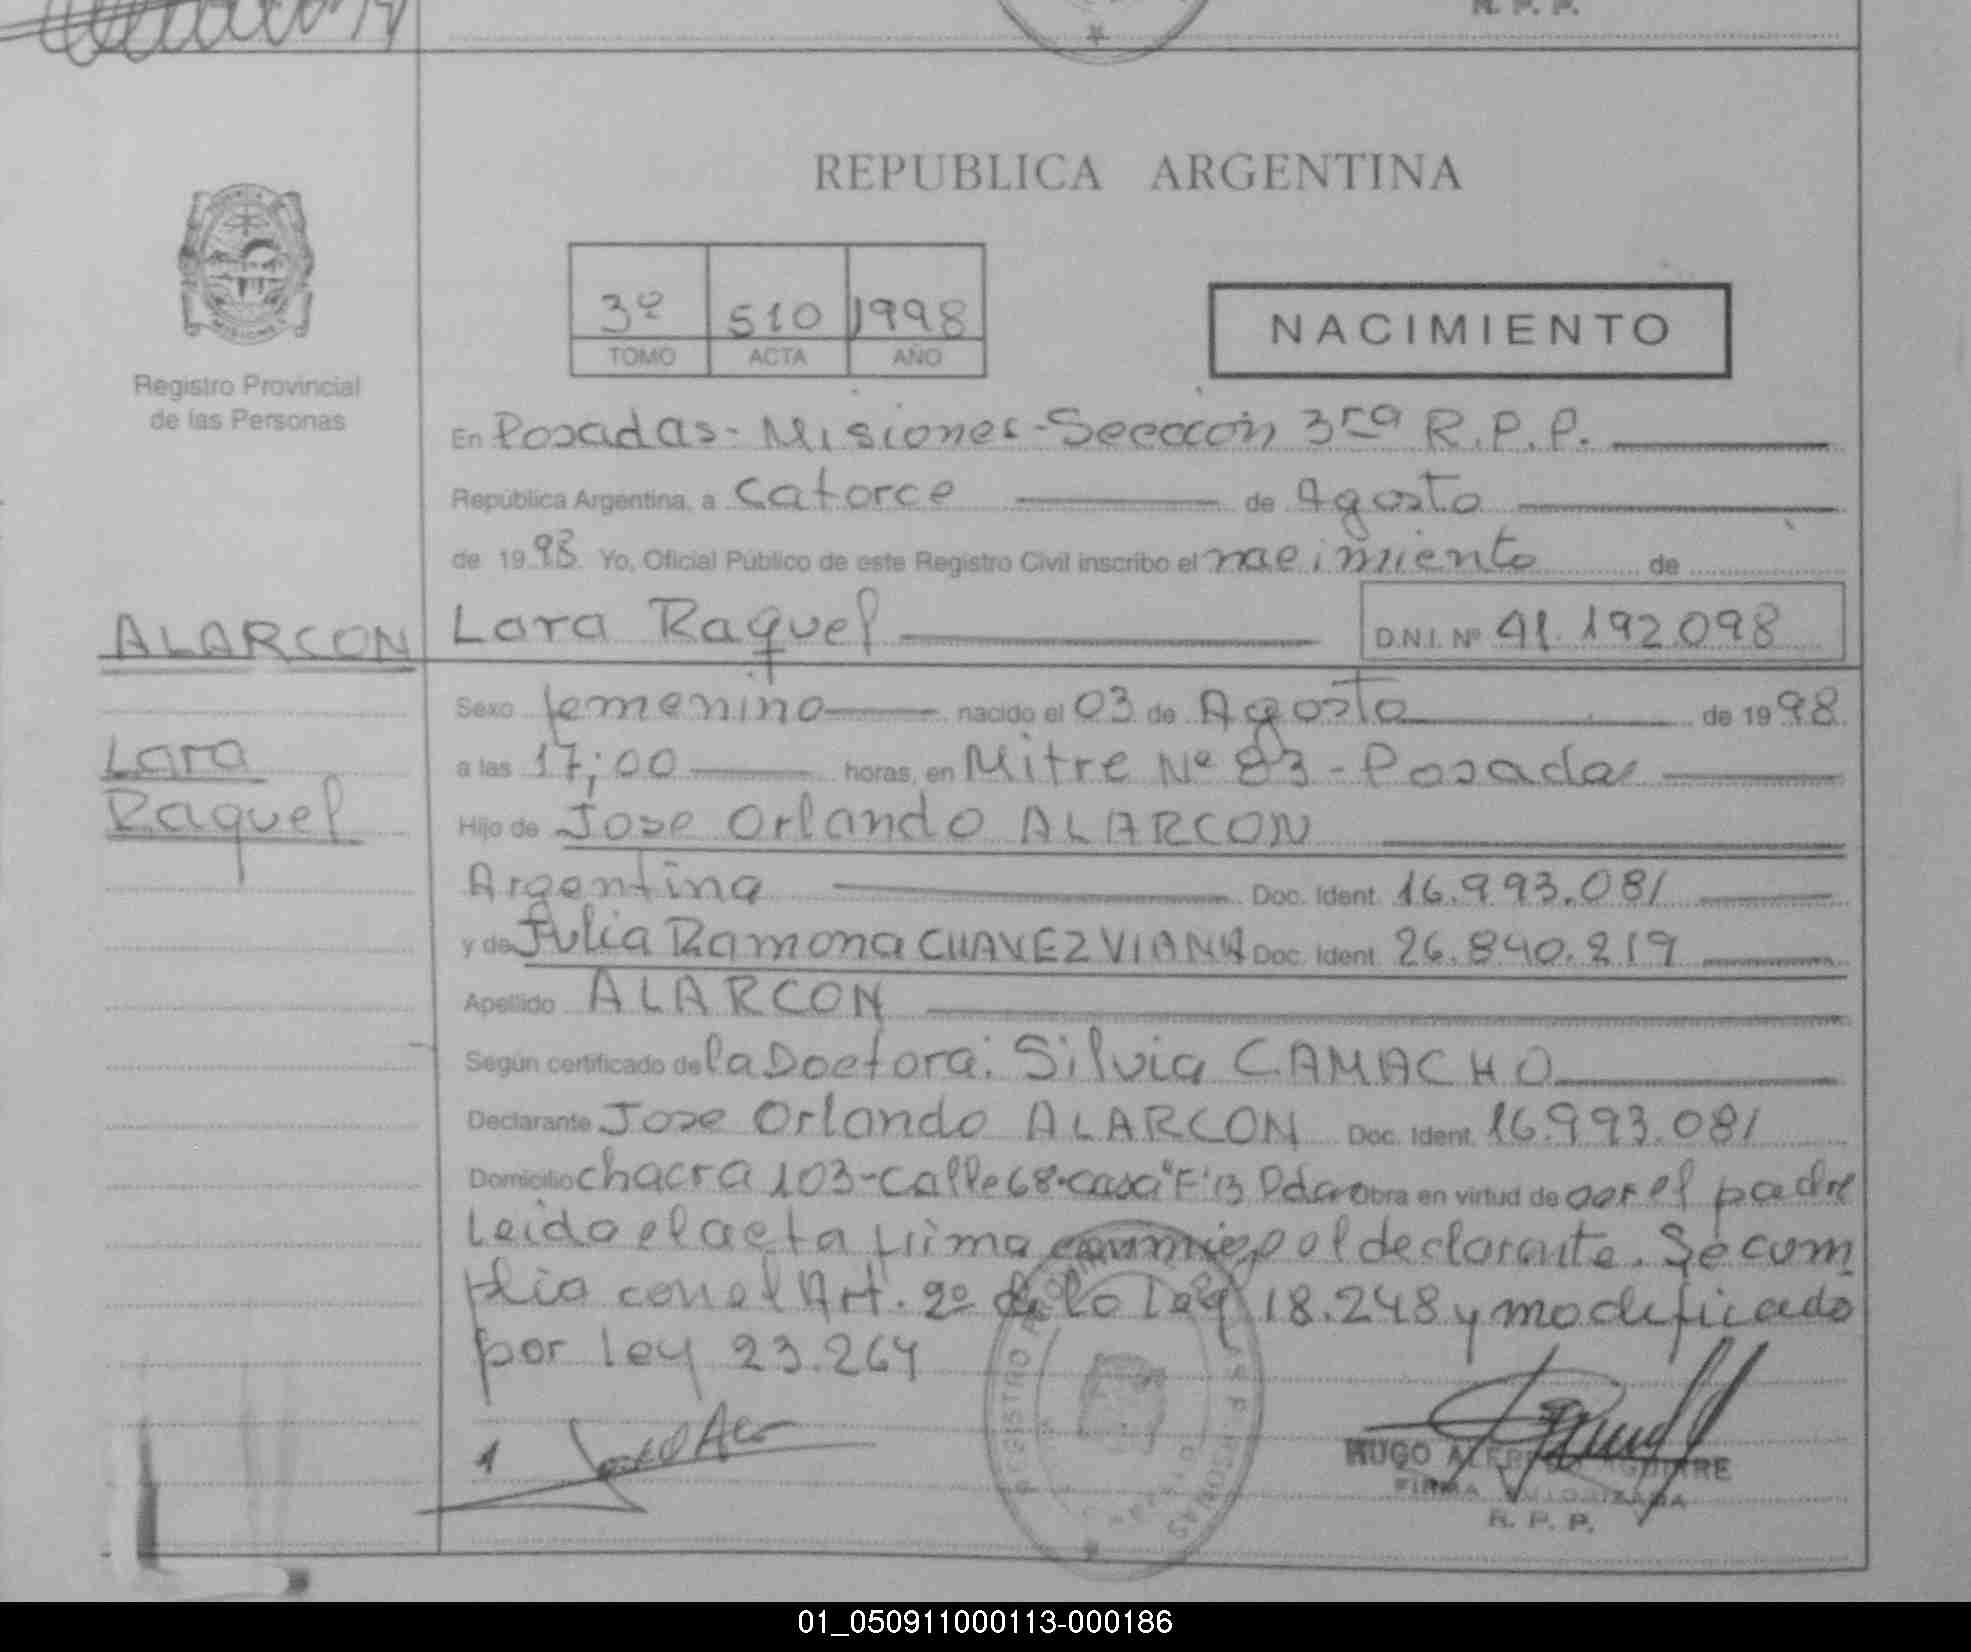 R. P. P.
REPUBLICA ARGENTINA
3º 510 1998
TOMO ACTA AÑO
NACIMIENTO
Registro Provincial
de las Personas
En Posadas - Misiones - Sección 3ra R.P.P.
República Argentina, a Catorce de Agosto
de 1998. Yo, Oficial Público de este Registro Civil inscribo el nacimiento de
ALARCON
Lara Raquel D.N.I. Nº 41.192.098
Sexo femenino nacido el 03 de Agosto de 1998
Lara
a las 17;00 horas, en Mitre Nº 83 - Posadas
Raquel
Hijo de Jose Orlando ALARCON
Argentina Doc. Ident. 16.993.081
y de Julia Ramona CHAVEZ VIANA Doc. Ident. 26.840.219
Apellido ALARCON
Según certificado de la Doctora: Silvia CAMACHO
Declarante Jose Orlando ALARCON Doc. Ident. 16.993.081
Domicilio chacra 103 - Calle 68 - casa "F" 13 Pdas Obra en virtud de ser el padre
Leido el acta firma conmigo el declarante. Se cum
plio con el Art. 2º de la Ley 18.248 y modificado
por ley 23.264
REGISTRO PERSONAS
HUGO ALFREDO AGUIRRE
FIRMA AUTORIZADA
R. P. P.
01_050911000113-000186